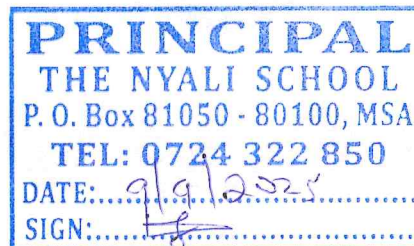 PRINCIPAL
THE NYALI SCHOOL
P. O. Box 81050 - 80100, MSA
TEL: 0724 322 850
DATE:....9/9/2025....
SIGN:....